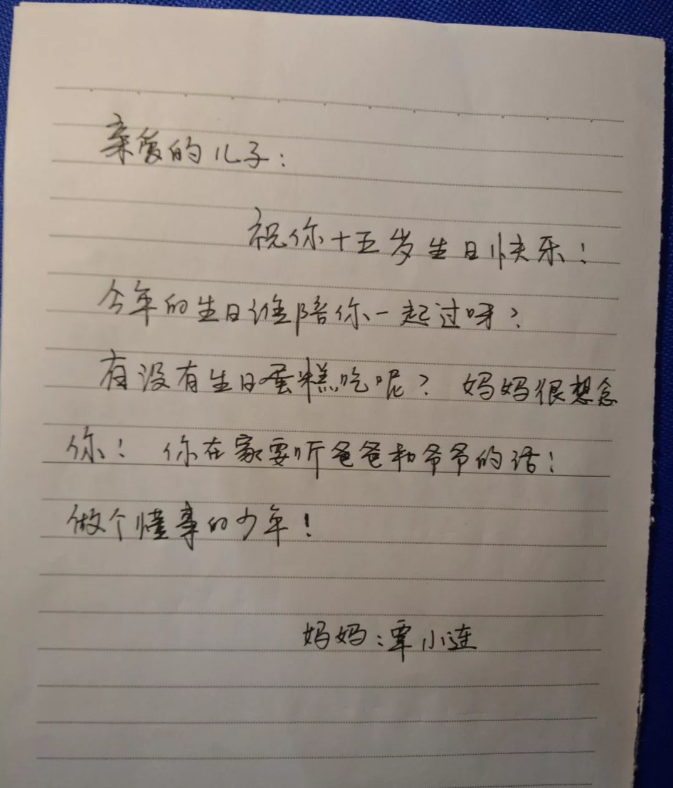 亲爱的儿子:
祝你十五岁生日快乐!
今年的生日谁陪你一起过呀?
有没有生日蛋糕吃呢? 妈妈很想念
你! 你在家要听爸爸和爷爷的话!
做个懂事的少年!
妈妈:覃小莲